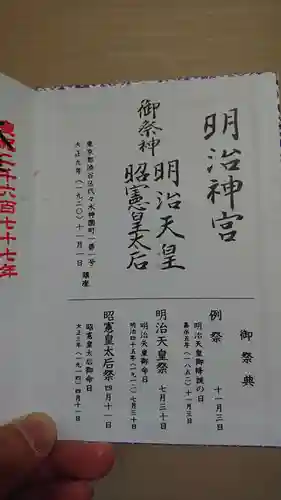 明治神宮
御祭神
明治天皇
昭憲皇太后
東京都渋谷区代々木神園町一番一号
大正九年(一九二〇)十一月一日 鎮座
御祭典
例祭 十一月三日
明治天皇御降誕の日
嘉永五年(一八五二)十一月三日
明治天皇祭 七月三十日
明治天皇御命日
明治四十五年(一九一二)七月三十日
昭憲皇太后祭 四月十一日
昭憲皇太后御命日
大正三年(一九一四)四月十一日
二千六百七十七年